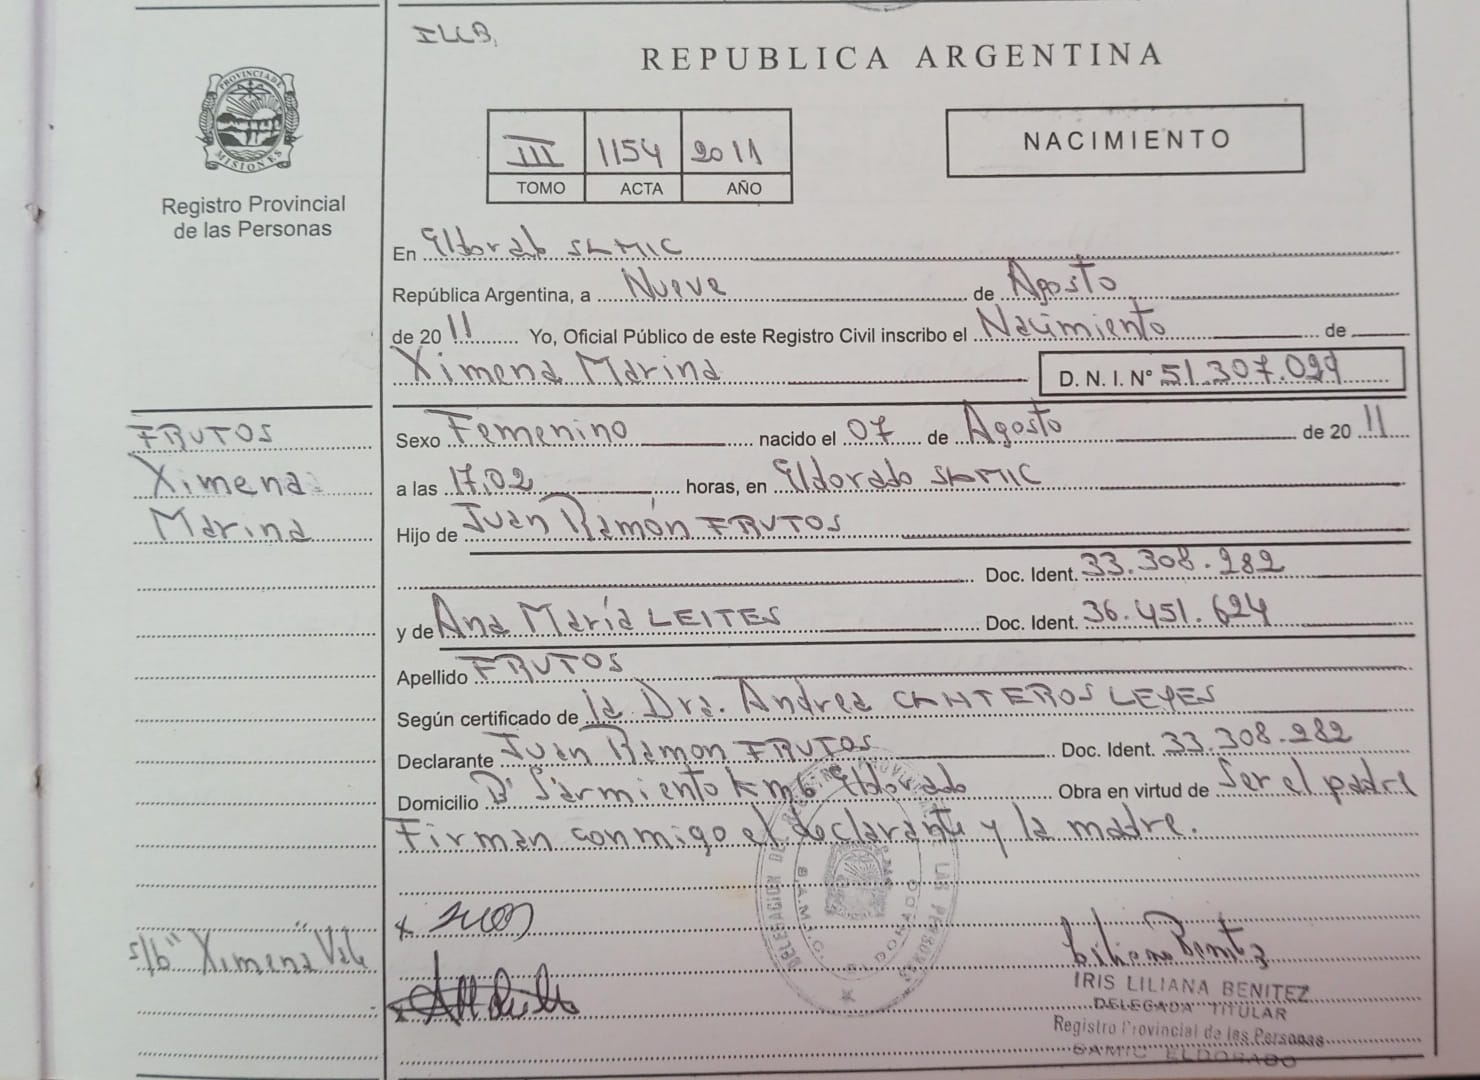 ILLB,
REPUBLICA ARGENTINA
PROVINCIA DE
MISIONES
Registro Provincial
de las Personas
III 1154 2011
TOMO ACTA AÑO
NACIMIENTO
En Eldorado SAMIC
República Argentina, a Nueve de Agosto
de 2011 Yo, Oficial Público de este Registro Civil inscribo el Nacimiento de
Ximena Marina D. N. I. Nº 51.307.029
FRUTOS
Ximena
Marina
Sexo Femenino nacido el 07 de Agosto de 2011
a las 17,02 horas, en Eldorado SAMIC
Hijo de Juan Ramón FRUTOS
Doc. Ident. 33.308.282
y de Ana María LEITES Doc. Ident. 36.451.624
Apellido FRUTOS
Según certificado de la Dra. Andrea CANTEROS LEYES
Declarante Juan Ramon FRUTOS Doc. Ident. 33.308.282
Domicilio Bº Sarmiento Km6 Eldorado Obra en virtud de Ser el padre
Firman conmigo el declarante y la madre.
s/b "Ximena" Vale
DELEGACION DEL REGISTRO PROVINCIAL DE LAS PERSONAS
ELDORADO
IRIS LILIANA BENITEZ
DELEGADA TITULAR
Registro Provincial de las Personas
SAMIC ELDORADO